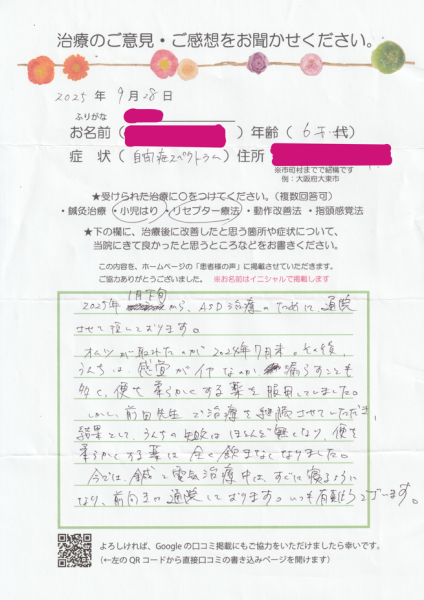 治療のご意見・ご感想をお聞かせください。
2025 年 9月 28日
ふりがな
お名前( )年齢( 6才 代)
症 状( 自閉症スペクトラム )住所
※市町村までで結構です
例：大阪府大東市
★受けられた治療に○をつけてください。（複数回答可）
・鍼灸治療 ・小児はり ・リセプター療法 ・動作改善法 ・指頭感覚法
★下の欄に、治療後に改善したと思う箇所や症状について、
当院にきて良かったと思うところなどをお書きください。
この内容を、ホームページの「患者様の声」に掲載させていただきます。
ご協力ありがとうございました。 ※お名前はイニシャルで掲載します
1月下旬
2025年 から、ASD治療のために通院
させて頂しております。
オムツが取れたのが2024年7月末。その後、
うんちは、感覚が 漏らすことも
多く、便を柔らかくする薬を服用してました。
しかし、前田先生で治療を継続させていただき、
結果として、うんちの失敗はほとんど無くなり、便を
柔らかくする薬は全く飲まなくなりました。
今では、鍼と電気治療中は、すぐに寝るように
なり、前向きに通院しております。いつも有難うございます。
よろしければ、Googleの口コミ掲載にもご協力をいただけましたら幸いです。
(←左のQRコードから直接口コミの書き込みページを開けます)